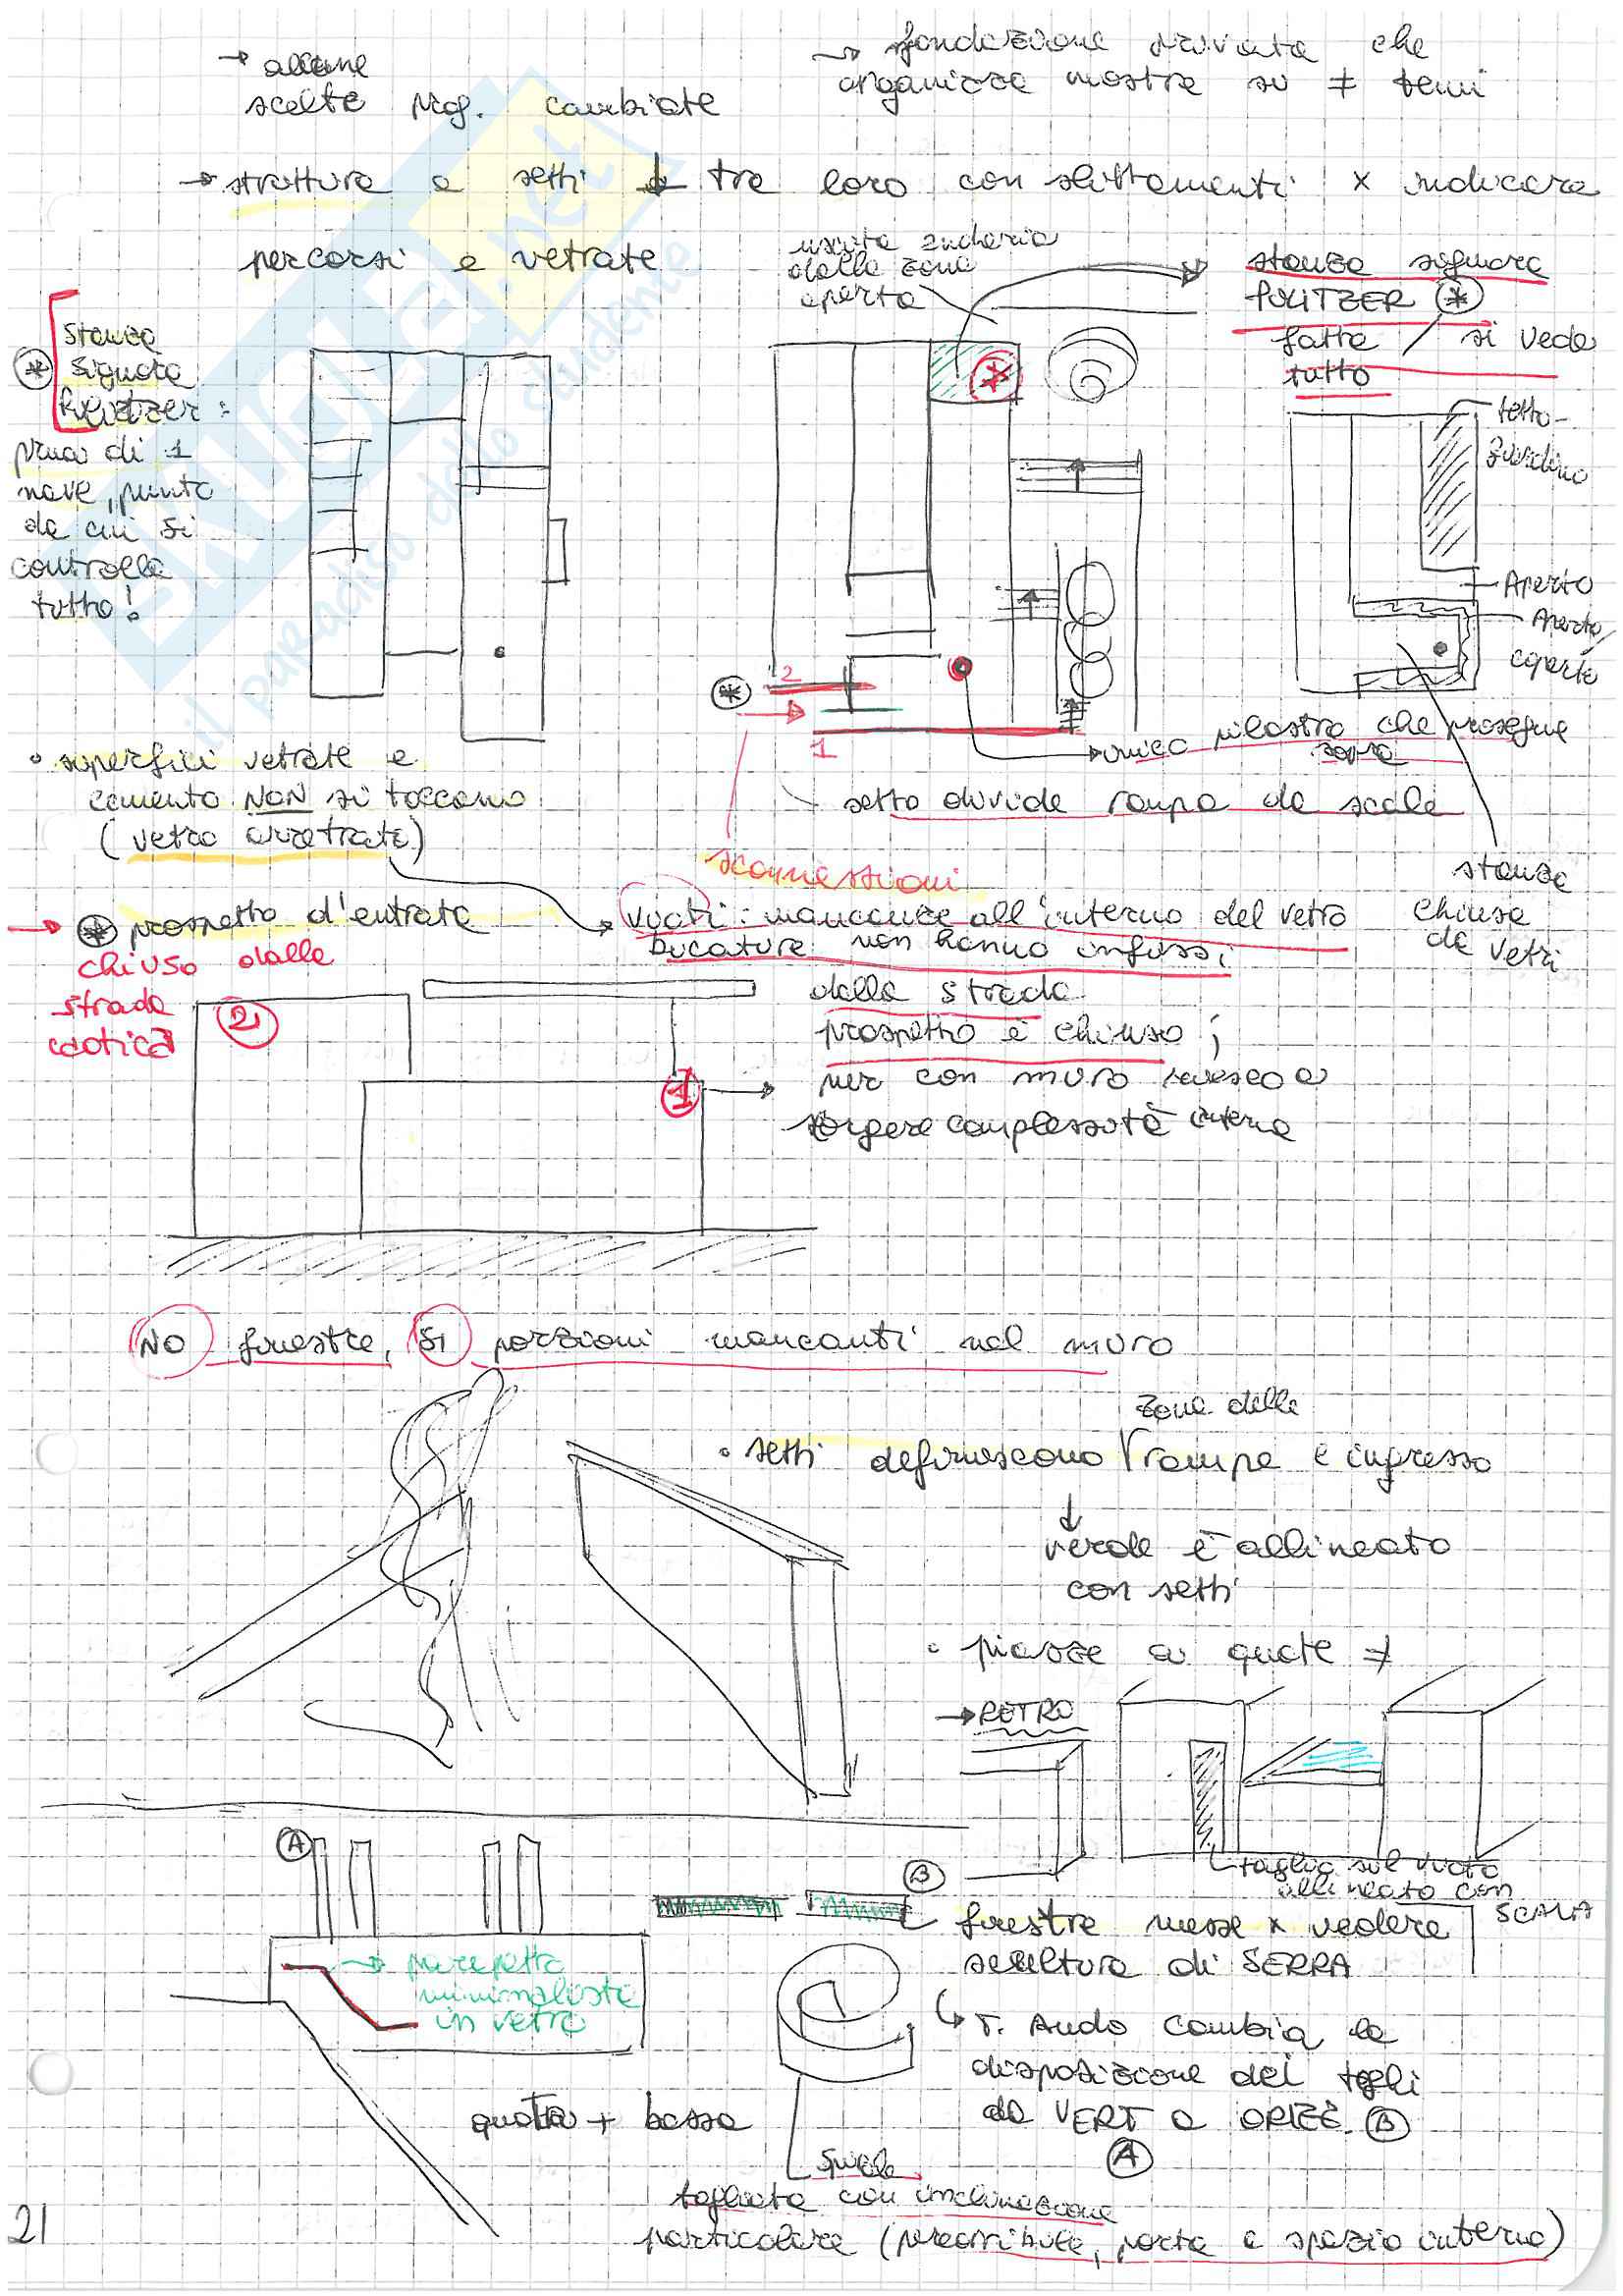 → alcune
scelte prog. cambiate
→ fondazione privata che
organizza mostre su ≠ temi
→ struttura a setti tra loro con slittamenti x indicare
percorsi e vetrate
uscita
dalla zona
aperta
→ stanza signora
PULITZER *
fatta / si vede
tutto
* Stanza
Signora
Pulitzer:
prua di 1
nave, punto
da cui si
controlla
tutto!
tetto-
giardino
Aperto
Aperto/
coperto
* 2
1
→ unico pilastro che prosegue
sopra
setto divide rampa da scale
stanza
chiusa
da vetri
• superfici vetrate e
cemento NON si toccano
(vetro arretrato)
sconnessioni
→ * prospetto d'entrata
chiuso dalla
strada
caotica
→ vuoti: mancanze all'interno del vetro
bucature non hanno infissi
2
1
dalla strada
prospetto è chiuso;
per con muro riesco a
complessità interna
NO finestre, SI porzioni mancanti nel muro
• setti definiscono zona delle rampe e ingresso
↓
verde è allineato
con setti
• piazze a quote ≠
→ RETRO
taglio sul vuoto
allineato con
SCALA
A
→ parapetto
minimalista
in vetro
quota + bassa
B
finestre messe x vedere
scultura di SERRA
↳ T. Ando cambia la
disposizione dei tagli
da VERT a ORIZZ. B
A
spirale
tagliata con inclinazione
particolare (percorribile, porta a spazio interno)
21
SKUOLA.net
il paradiso dello studente